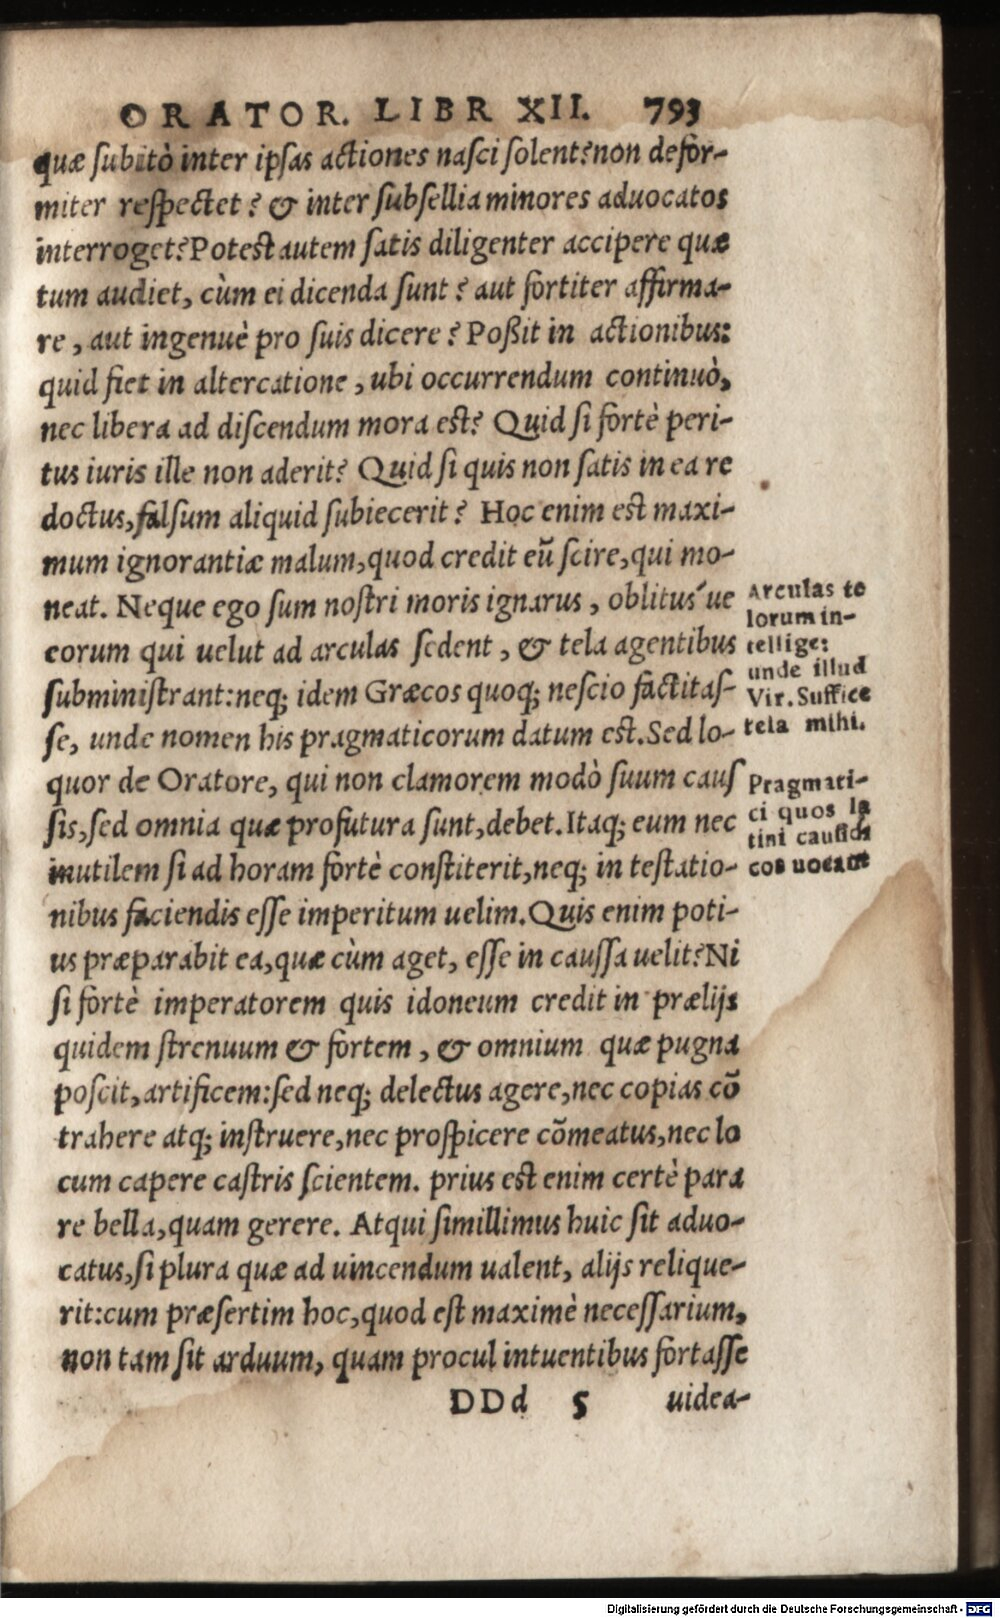 ORATOR. LIBR XII. 793
quæ subitò inter ipsas actiones nasci solent? non defor-
miter respectet? & inter subsellia minores aduocatos
interroget? Potest autem satis diligenter accipere quæ
tum audiet, cùm ei dicenda sunt? aut fortiter affirma-
re, aut ingenuè pro suis dicere? Poßit in actionibus:
quid fiet in altercatione, ubi occurrendum continuò,
nec libera ad discendum mora est? Quid si fortè peri-
tus iuris ille non aderit? Quid si quis non satis in ea re
doctus, falsum aliquid subiecerit? Hoc enim est maxi-
mum ignorantiæ malum, quod credit eũ scire, qui mo-
neat. Neque ego sum nostri moris ignarus, oblitus´ue
eorum qui uelut ad arculas sedent, & tela agentibus
subministrant: neq; idem Græcos quoq; nescio factitas-
se, unde nomen his pragmaticorum datum est. Sed lo-
quor de Oratore, qui non clamorem modò suum caus
sis, sed omnia quæ profutura sunt, debet. Itaq; eum nec
inutilem si ad horam fortè constiterit, neq; in testatio-
nibus faciendis esse imperitum uelim. Quis enim poti-
us præparabit ea, quæ cùm aget, esse in caussa uelit? Ni
si fortè imperatorem quis idoneum credit in prælijs
quidem strenuum & fortem, & omnium quæ pugna
poscit, artificem: sed neq; delectus agere, nec copias cõ
trahere atq; instruere, nec prospicere cõmeatus, nec lo
cum capere castris scientem. prius est enim certè para
re bella, quam gerere. Atqui simillimus huic sit aduo-
catus, si plura quæ ad uincendum ualent, alijs relique-
rit: cum præsertim hoc, quod est maximè necessarium,
non tam sit arduum, quam procul intuentibus fortasse
DDd 5 uidea-
Arculas te
lorum in-
tellige:
unde illud
Vir. Suffice
tela mihi.
Pragmati-
ci quos la
tini caussidi
cos uocant
Digitalisierung gefördert durch die Deutsche Forschungsgemeinschaft - DFG